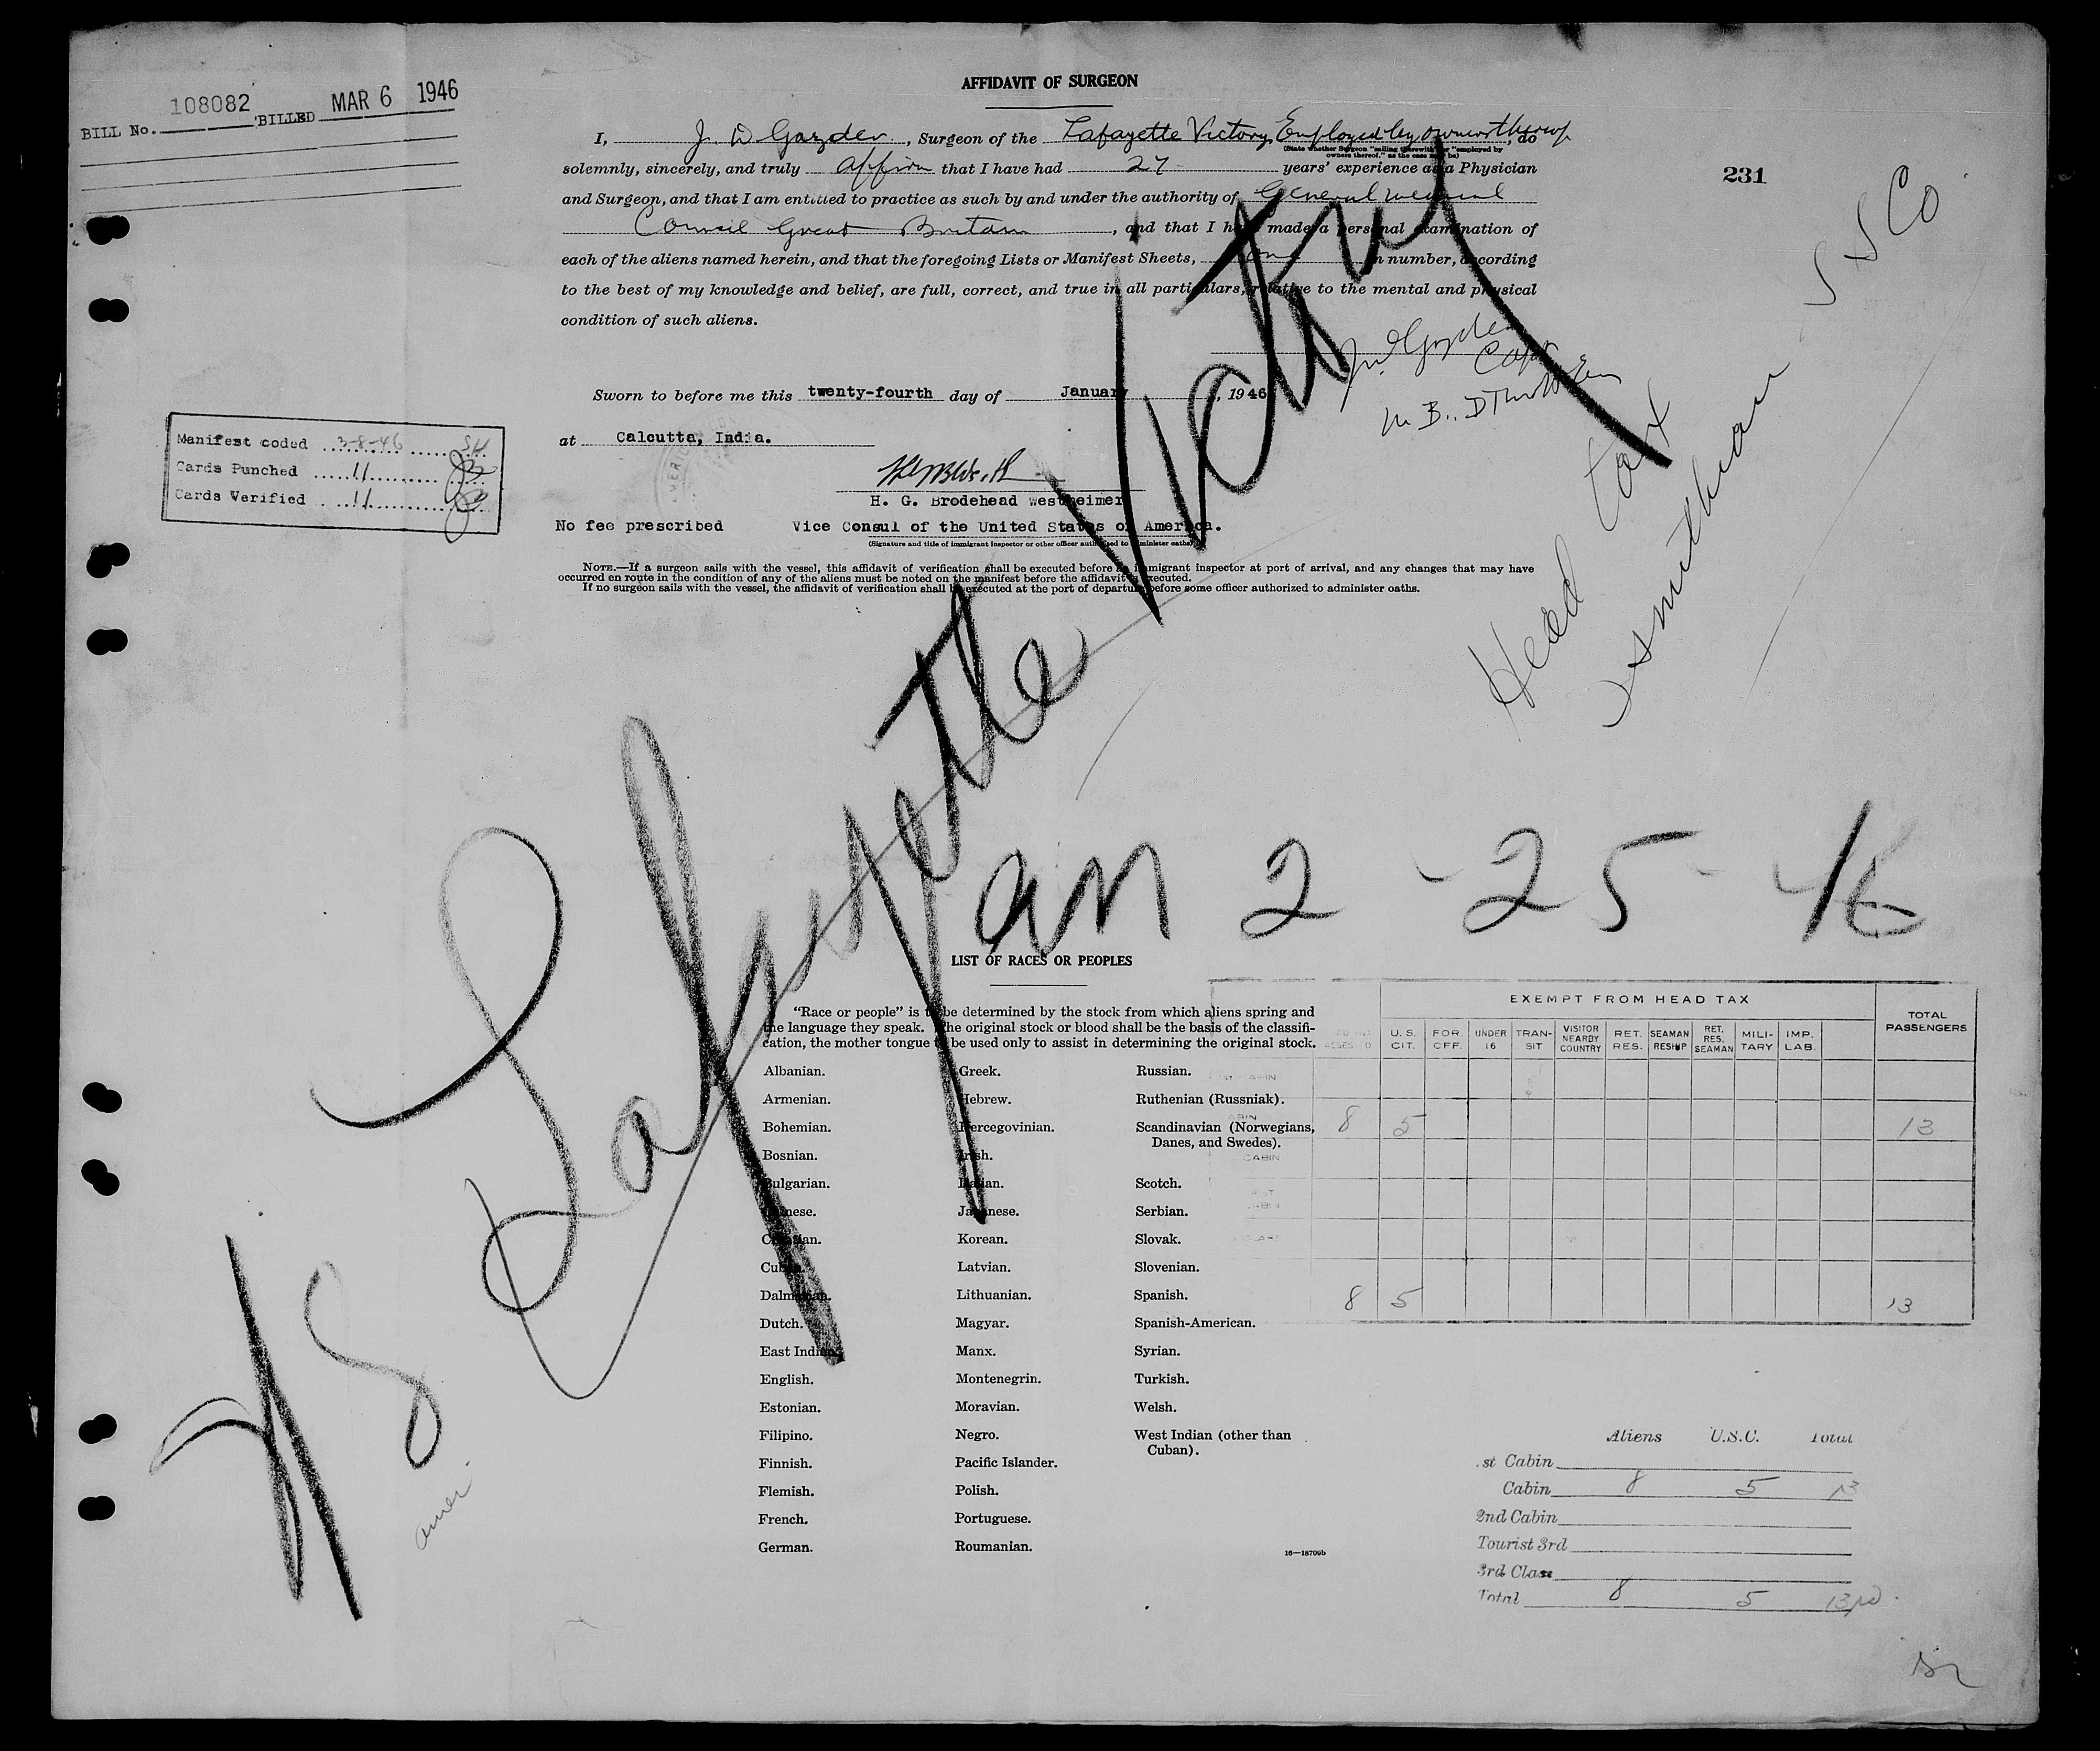 108082
BILL No. BILLED MAR 6 1946
AFFIDAVIT OF SURGEON
I, J. D Gazder, Surgeon of the Lafayette Victory, Employed by owners thereof, do
(State whether Surgeon "sailing therewith" or "employed by
owners thereof," as the case may be)
solemnly, sincerely, and truly affirm that I have had 27 years' experience as a Physician
231
and Surgeon, and that I am entitled to practice as such by and under the authority of General Medical
Council Great Britain, and that I have made a personal examination of
each of the aliens named herein, and that the foregoing Lists or Manifest Sheets, One in number, according
to the best of my knowledge and belief, are full, correct, and true in all particulars, relative to the mental and physical
condition of such aliens.
Sworn to before me this twenty-fourth day of January, 1946
at Calcutta, India.
H. G. Brodehead Westheimer
No fee prescribed Vice Consul of the United States of America.
(Signature and title of immigrant inspector or other officer authorized to administer oaths)
Manifest coded 3-8-46 SH
Cards Punched 11
Cards Verified 11
NOTE.—If a surgeon sails with the vessel, this affidavit of verification shall be executed before an immigrant inspector at port of arrival, and any changes that may have
occurred en route in the condition of any of the aliens must be noted on the manifest before the affidavit is executed.
If no surgeon sails with the vessel, the affidavit of verification shall be executed at the port of departure before some officer authorized to administer oaths.
Head tax
S S Co
Lafayette Victory
arr 2-25-46
LIST OF RACES OR PEOPLES
"Race or people" is to be determined by the stock from which aliens spring and
the language they speak. The original stock or blood shall be the basis of the classifi-
cation, the mother tongue to be used only to assist in determining the original stock.
Albanian.
Armenian.
Bohemian.
Bosnian.
Bulgarian.
Chinese.
Croatian.
Cuban.
Dalmatian.
Dutch.
East Indian.
English.
Estonian.
Filipino.
Finnish.
Flemish.
French.
German.
Greek.
Hebrew.
Hercegovinian.
Irish.
Italian.
Japanese.
Korean.
Latvian.
Lithuanian.
Magyar.
Manx.
Montenegrin.
Moravian.
Negro.
Pacific Islander.
Polish.
Portuguese.
Roumanian.
Russian.
Ruthenian (Russniak).
Scandinavian (Norwegians,
Danes, and Swedes).
Scotch.
Serbian.
Slovak.
Slovenian.
Spanish.
Spanish-American.
Syrian.
Turkish.
Welsh.
West Indian (other than
Cuban).
16—18709b
EXEMPT FROM HEAD TAX
TOTAL PASSENGERS
U.S. CIT. FOR. OFF. UNDER 16 TRAN-SIT VISITOR NEARBY COUNTRY RET. RES. SEAMAN RESHIP RET. RES. SEAMAN MILI-TARY IMP. LAB.
8 5 13
8 5 13
Aliens U.S.C. Total
st Cabin
Cabin 8 5 13
2nd Cabin
Tourist 3rd
3rd Class
Total 8 5 13
amer